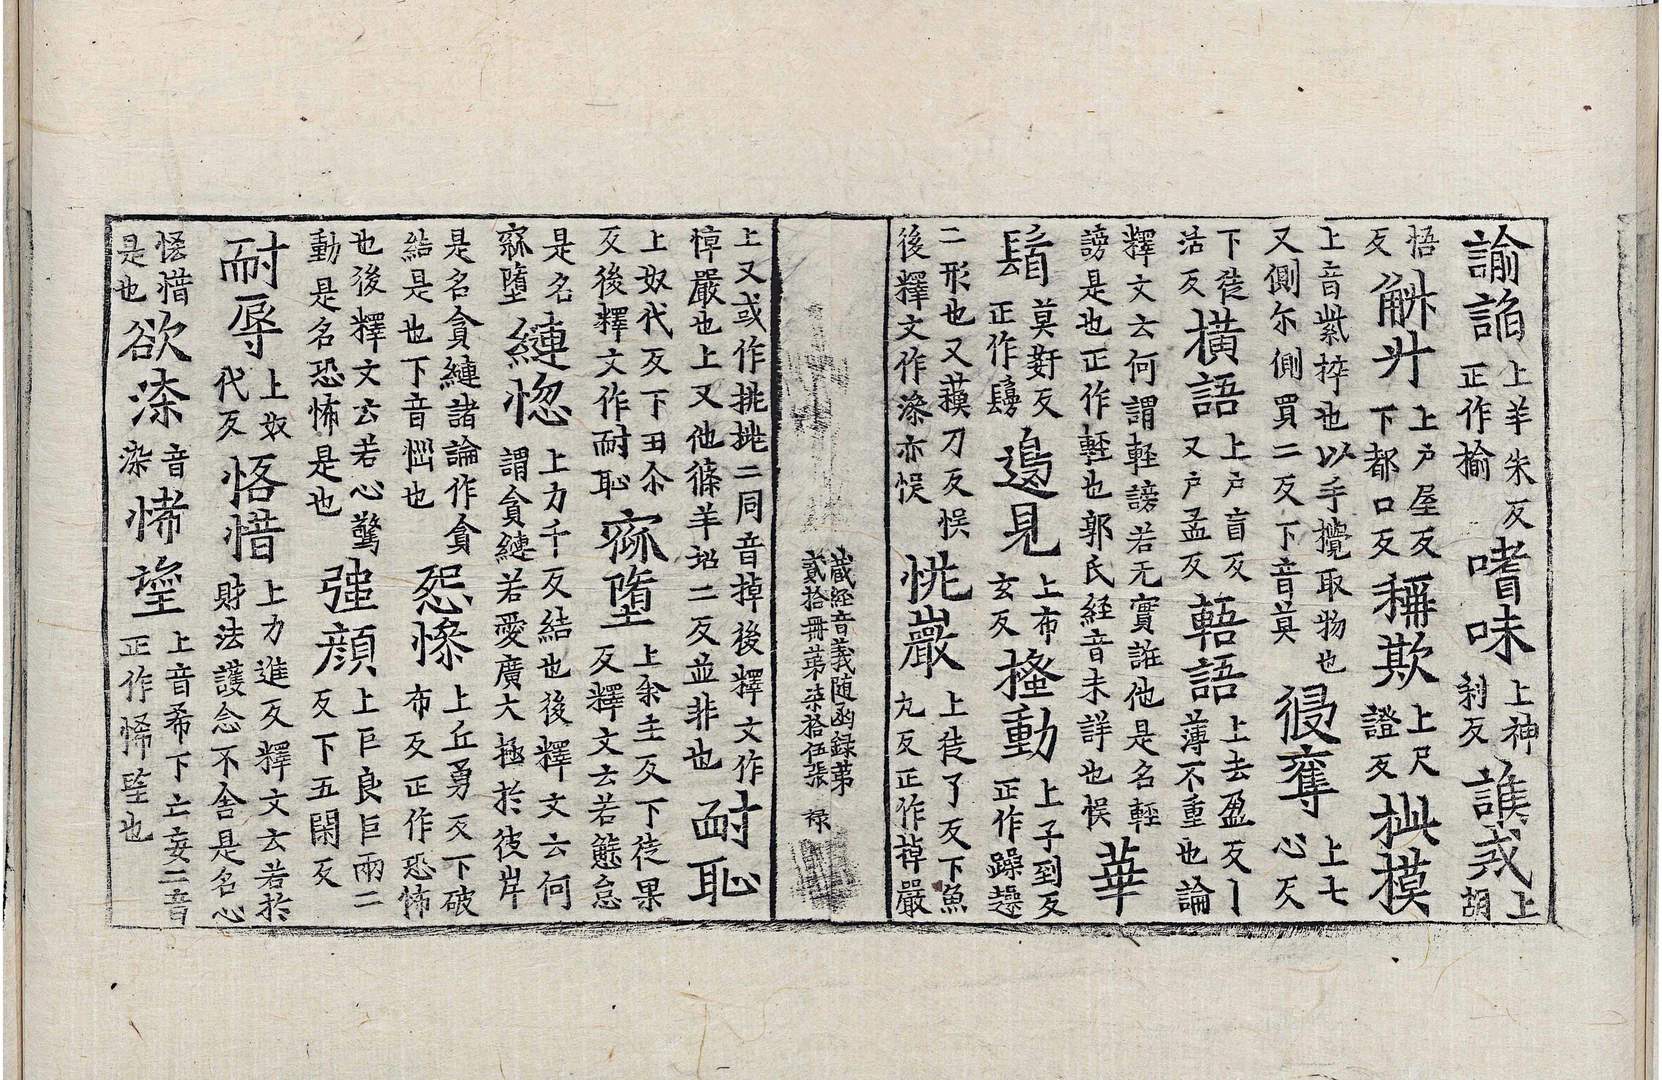 諭諂上羊朱反正作揄嗜味上神利反譙戎上胡
悟反觓廾上户屋反下都口反稱欺上尺證反㭰模
上音紫捽也以手攬取物也又側尔側買二反下音莫𠋫奪上七心反
下徒活反橫語上户盲反又户孟反䡖語上去盈反丨薄不重也論
釋文云何謂輕謗若无實誑他是名輕謗是也正作輕也郭氏經音未詳也悮華
鬚莫𡛖反正作鬘邊見上布玄反搔動上子到反正作躁趮
二形也又䔥刀反悮後釋文作滌亦悮恌巖上徒了反下魚丸反正作掉嚴
藏經音義随函録苐貳拾册苐柒拾伍張 禄
上又或作挑挑二同音掉後釋文作悼嚴也上又他條羊招二反並非也耐恥
上奴代反下丑尒反後釋文作耐恥㝛墮上余主反下徒果反釋文云若懈怠
是名㝛墮纏㥦上力千反結也後釋文云何謂貪纏若愛廣大極於彼岸
是名貪纏諸論作貪結是也下音惱也恐㦗上丘勇反下破布反正作恐怖
也後釋文云若心驚動是名恐怖是也强顔上巨良巨兩二反下五閑反
耐辱上奴代反悋惜上力進反釋文云若於財法護念不舍是名心
悋惜是也欲㓒音染悕𦣠上音希下亡妄二音正作悕望也